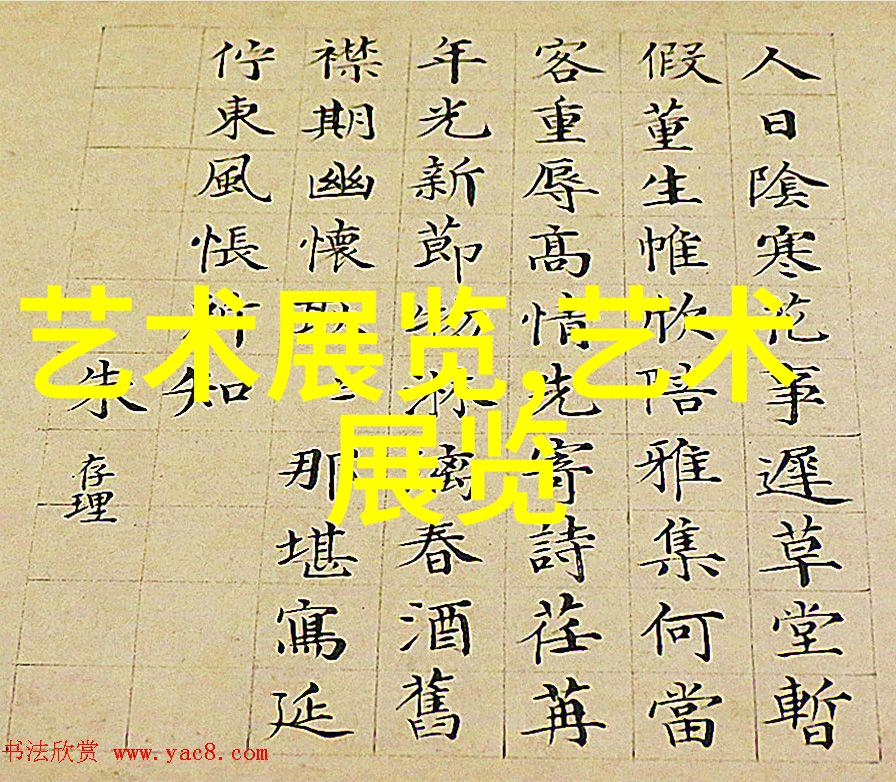 人日陰寒花事遲草堂暫
假董生帷欣陪雅集何當
客重辱高情先寄詩荏苒
年光新節物淋漓春酒舊
襟期幽懷那堪寫延
佇東風悵知
朱存理
艺术展览,艺术
展览
书法欣赏 www.yac8.com